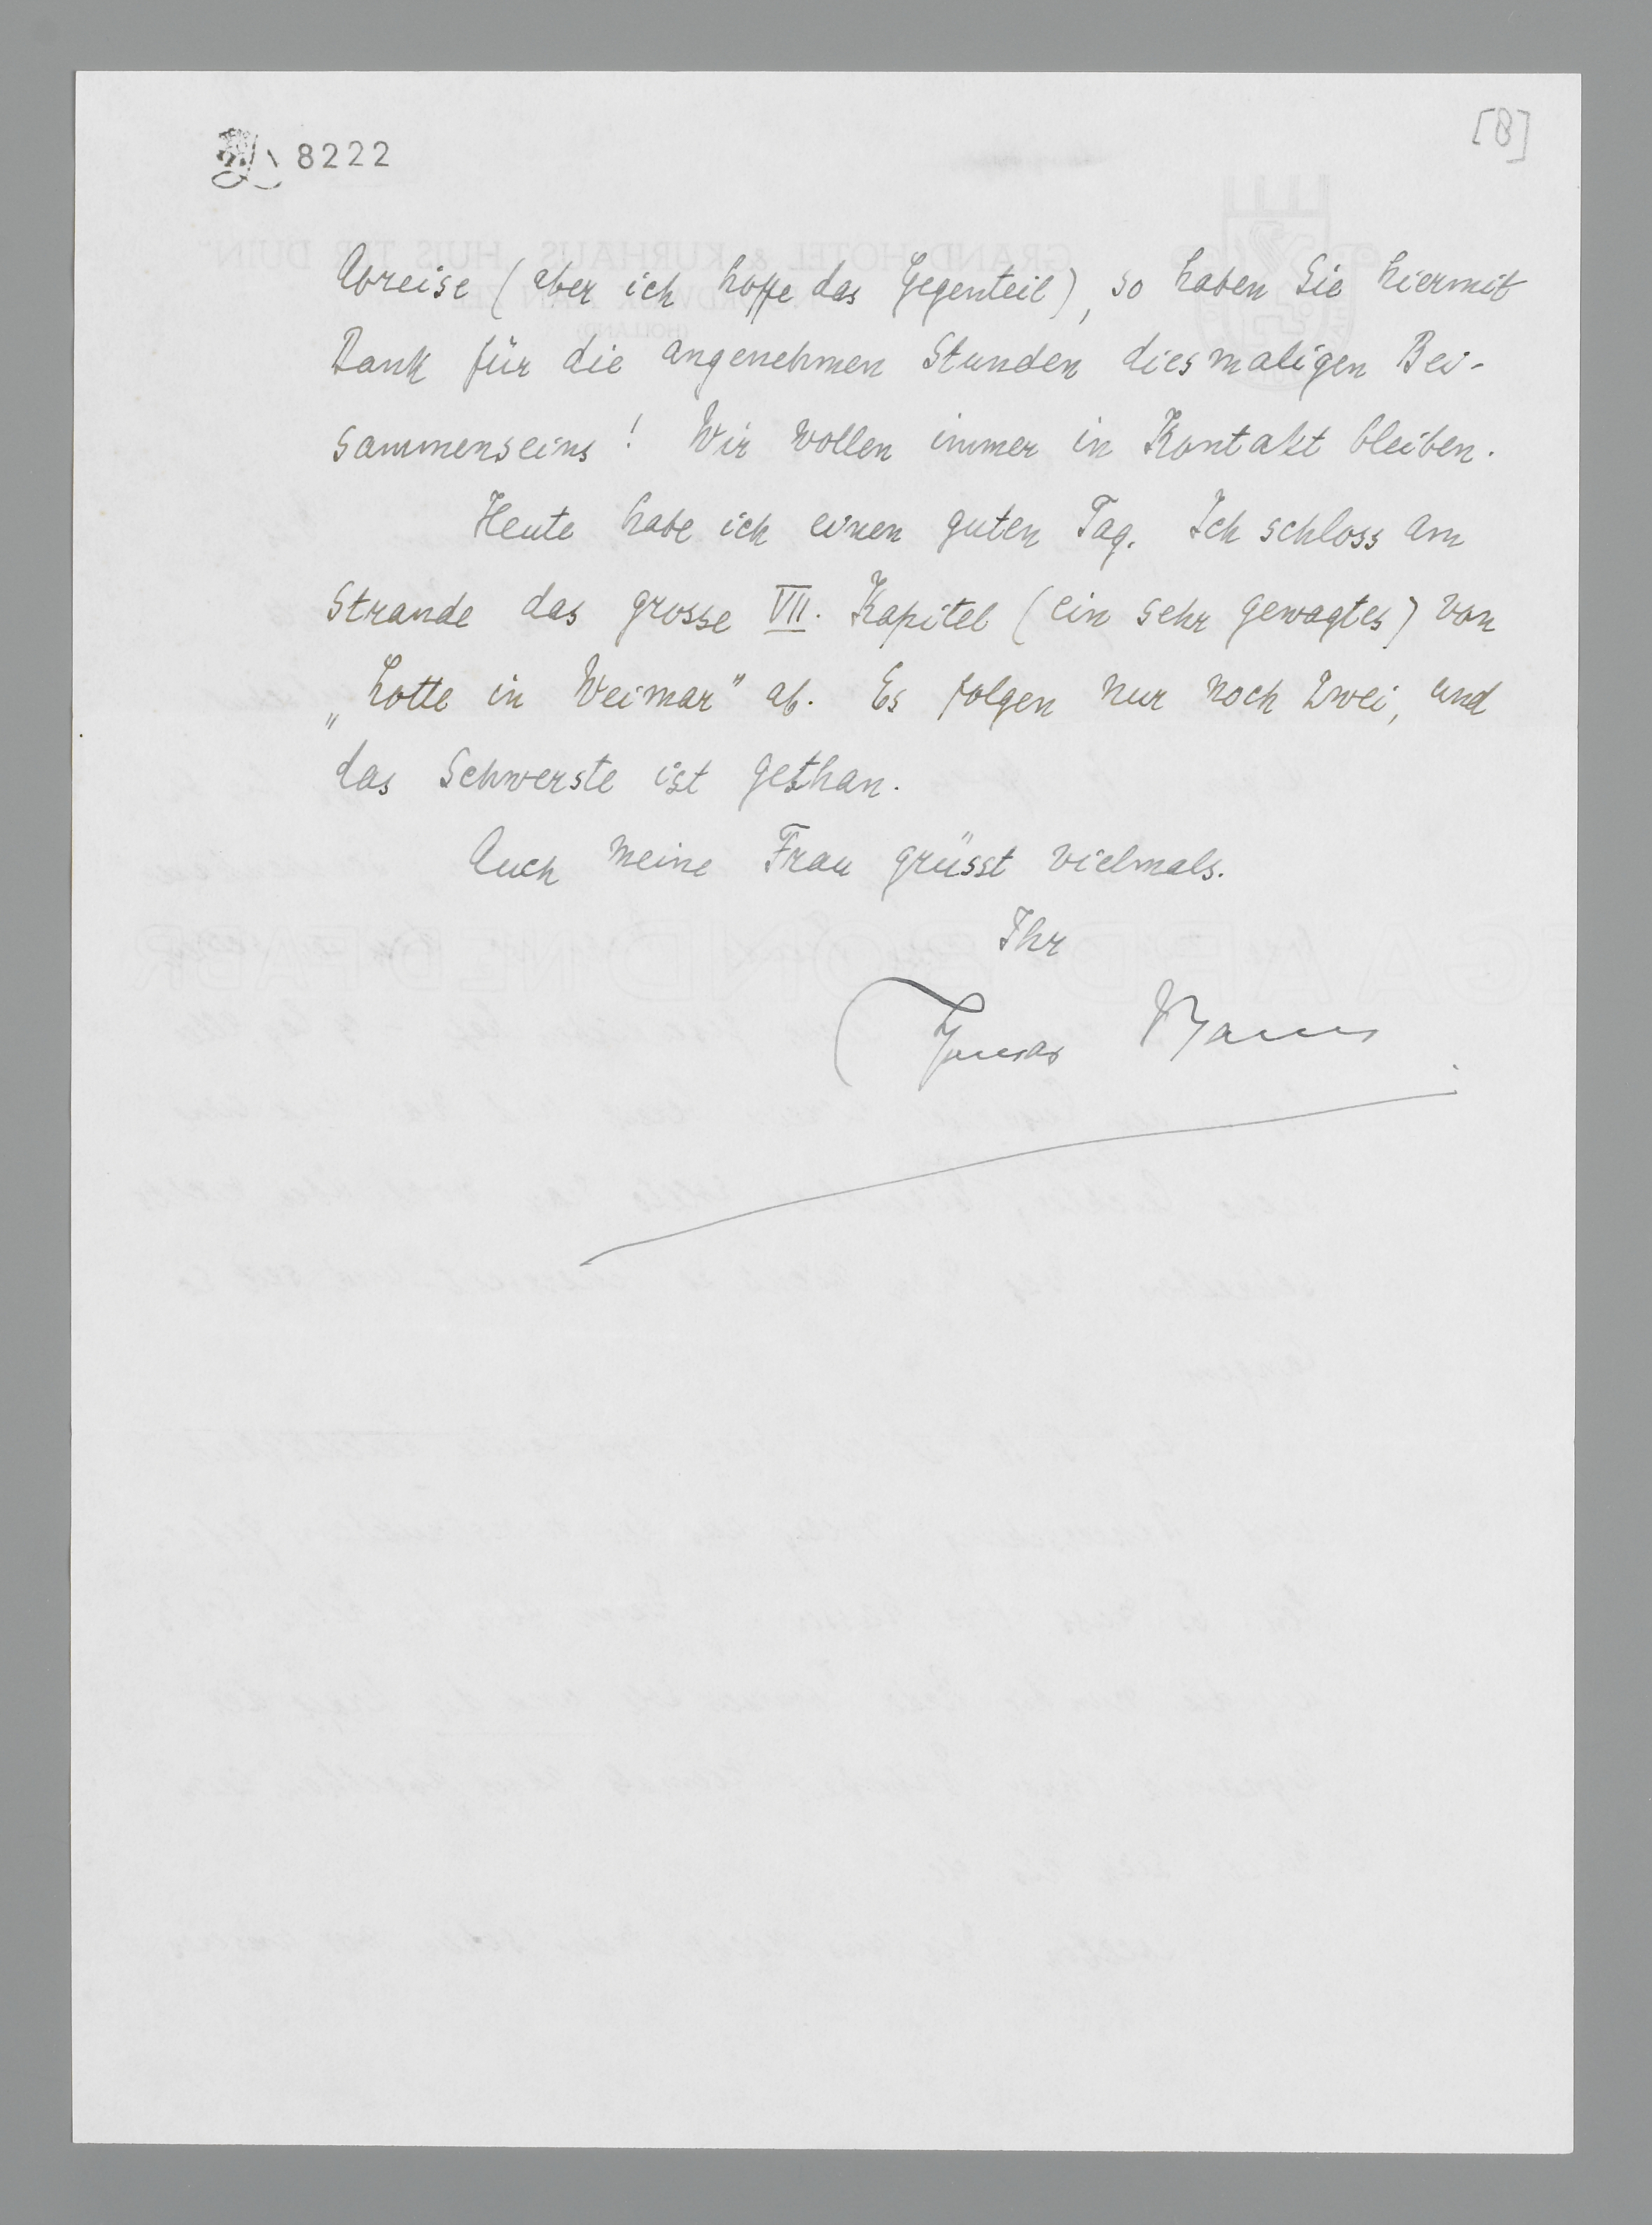 [8]
8222
Abreise (aber ich hoffe das Gegenteil), so haben Sie hiermit
Dank für die angenehmen Stunden diesmaligen Bei-
sammenseins! Wir wollen immer in Kontakt bleiben.
Heute habe ich einen guten Tag. Ich schloss am
Strande das grosse VII. Kapitel (ein sehr gewagtes) von
„Lotte in Weimar" ab. Es folgen nur noch zwei, und
das Schwerste ist gethan.
Auch meine Frau grüsst vielmals.
Ihr
Thomas Mann
GRAND HOTEL & KURHAUS „HUIS TER DUIN"
(HOLLAND)